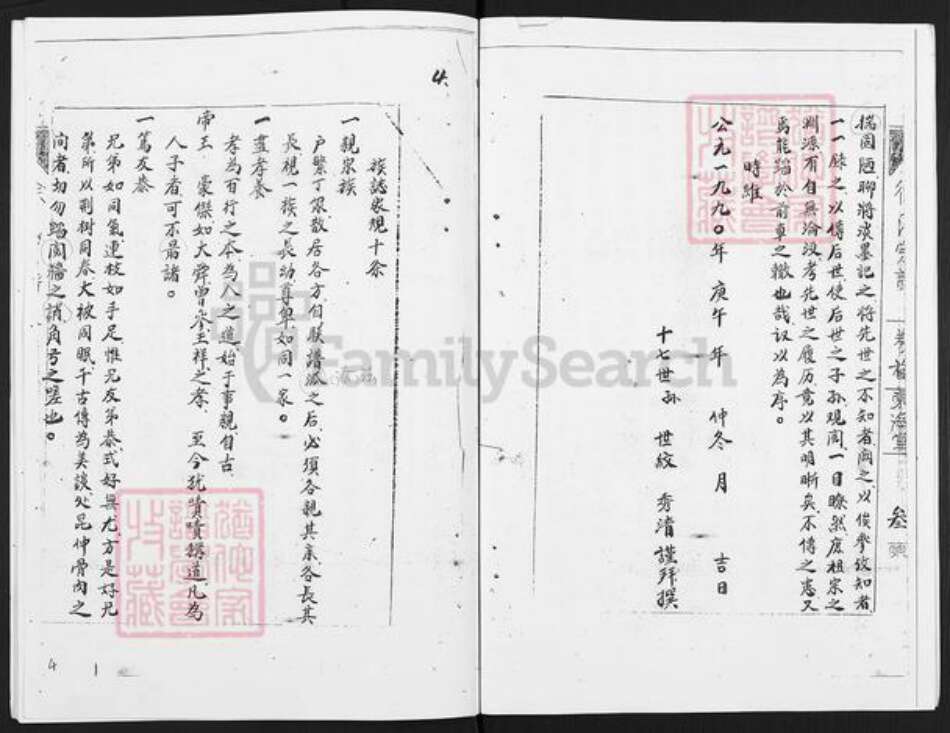 揣固陋聊將淡墨記之將先世之不知者闕之以俟參攷知者
一一錄之以傳后世使后世之子孫观閱一目瞭然庶祖宗之
渊源有自無淪没考先世之履历竟以其明晰矣不傳之恚又
焉能蹈於前車之轍也哉议以為序。
時維
公元一九九〇年 庚午年 仲冬月 吉日
十七世孙 世紋 秀清 謹拜撰
東海堂
叁
4.
族誌家規十条
一親宗族
户繁丁眾散居各方自联譜派之后必須各親其亲各長其
長視一族之長幼尊卑如同一家。
一盡孝养
孝為百行之本為人之道始于事親自古
帝王 豪傑如大舜曾參王祥之孝 至今犹嘖嘖稱道凡為
人子者可不勗諸。
一篤友恭
兄弟如同氣連枝如手足惟兄友弟恭式好無尤方是好兄
弟所以荆树同春大被同眠千古傳為美談父昆仲骨肉之
间者切勿蹈阋墻之誚角弓之嗟也。
4
1
FamilySearch